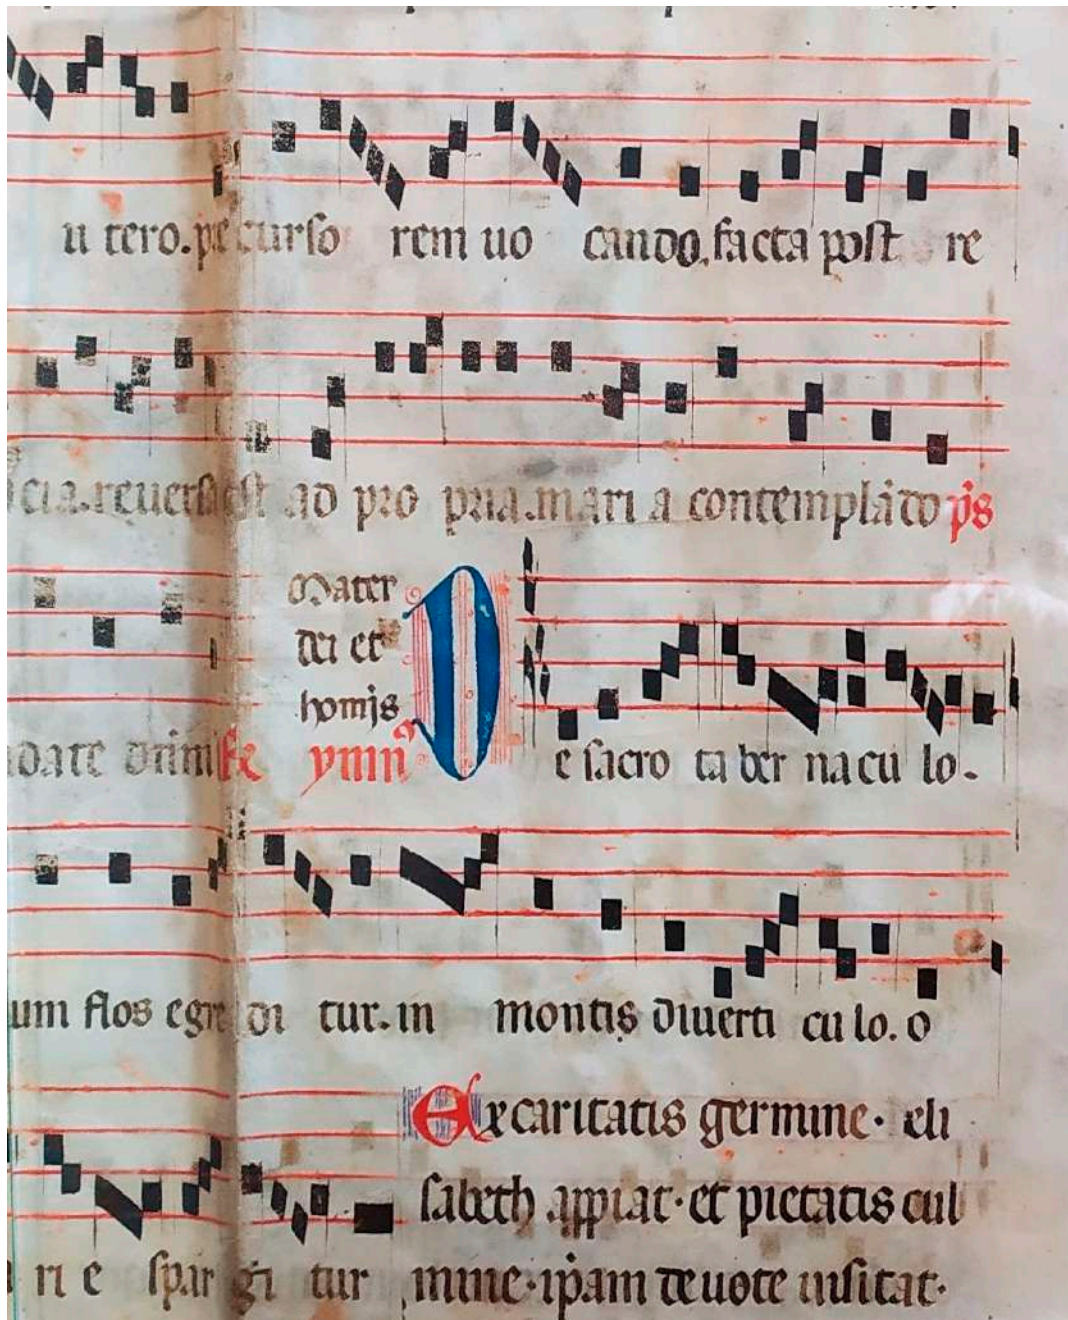 u tero. p̄cursо rem uo cando. facta post re
cia. reuersa est ad pro pria. mari a contemplādo p̄s
Mater
dei et
homīs
date dn̄m ymn̄
De sacro ta ber na cu lo.
um flos egre di tur. in montis diuerti cu lo. o
Ex caritatis germine. eli
sabeth appiat. et pietatis cul
ri e spar gi tur mine. ip̄am deuote uisitat.